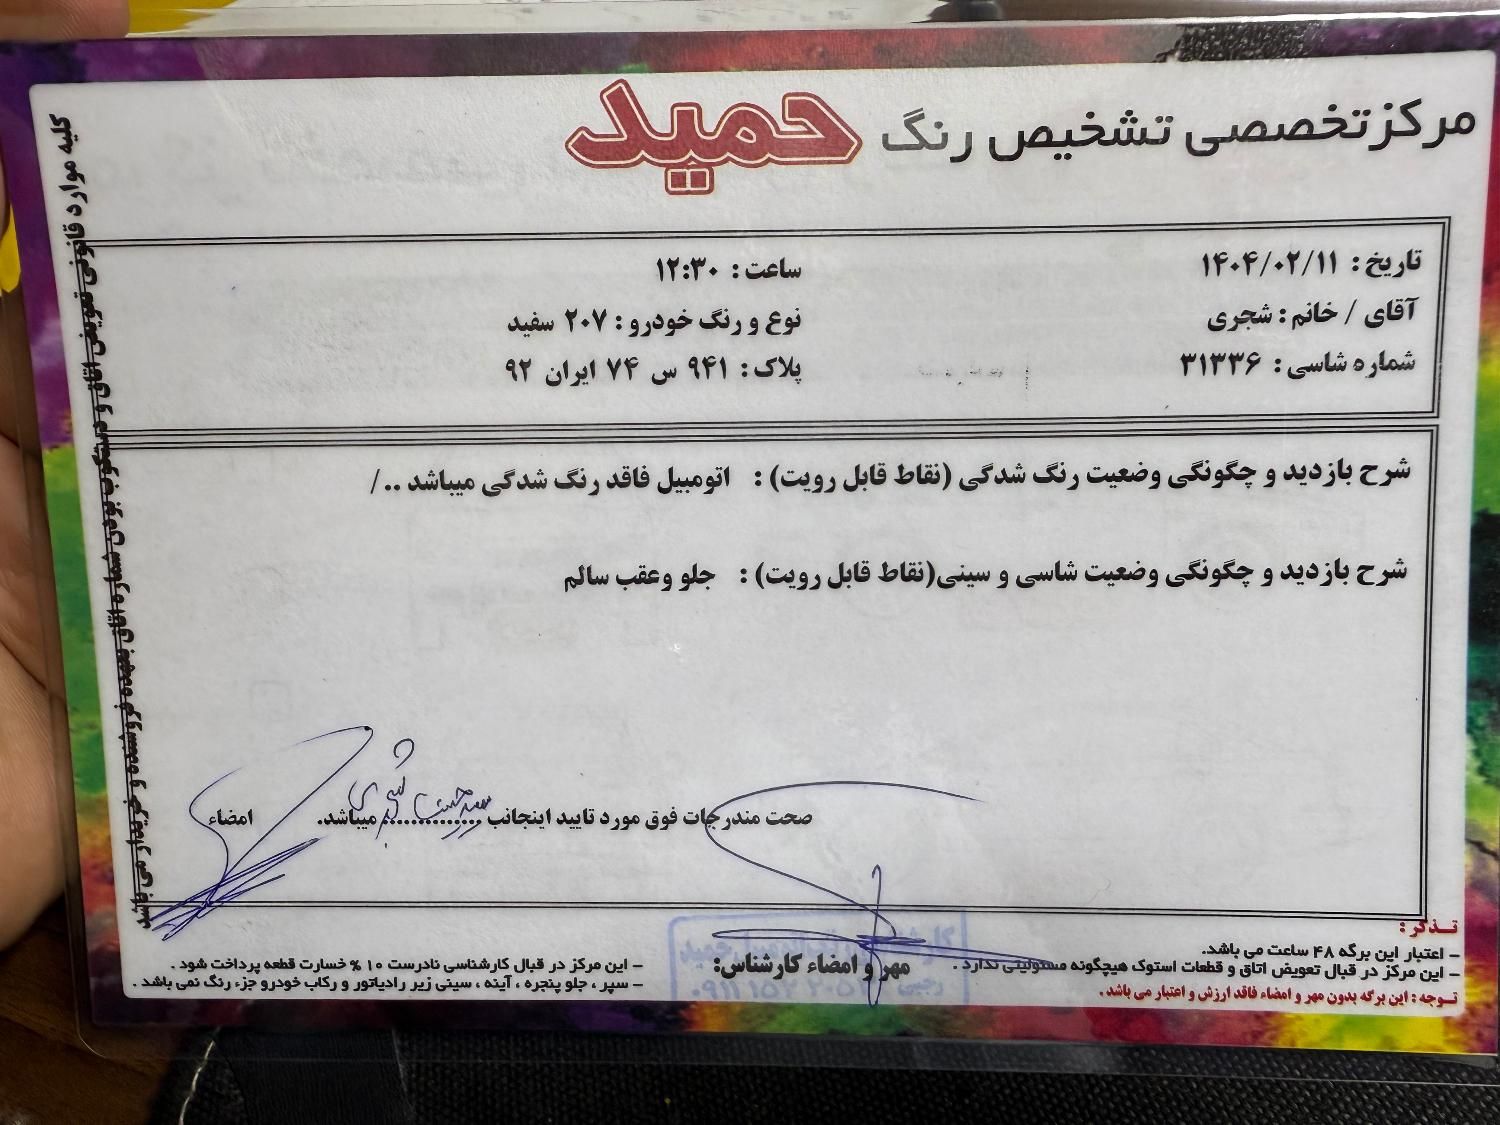 مرکز تخصصی تشخیص رنگ حمید
تاریخ : ۱۴۰۴/۰۲/۱۱
ساعت : ۱۲:۳۰
آقای / خانم : شجری
نوع و رنگ خودرو : ۲۰۷ سفید
شماره شاسی : ۳۱۳۳۶
پلاک : ۹۴۱ س ۷۴ ایران ۹۲
شرح بازدید و چگونگی وضعیت رنگ شدگی (نقاط قابل رویت) : اتومبیل فاقد رنگ شدگی میباشد ../
شرح بازدید و چگونگی وضعیت شاسی و سینی(نقاط قابل رویت) : جلو وعقب سالم
صحت مندرجات فوق مورد تایید اینجانب .............. میباشد. امضاء
شجری
مهر و امضاء کارشناس:
تـذکر :
– اعتبار این برگه ۴۸ ساعت می باشد.
– این مرکز در قبال تعویض اتاق و قطعات استوک هیچگونه مسئولیتی ندارد .
توجه : این برگه بدون مهر و امضاء فاقد ارزش و اعتبار می باشد .
– این مرکز در قبال کارشناسی نادرست ۱۰ % خسارت قطعه پرداخت شود .
– سپر ، جلو پنجره ، آینه ، سینی زیر رادیاتور و رکاب خودرو جزء رنگ نمی باشد .
کلیه موارد قانونی تعویض اتاق و دستکوب بودن شماره اتاق بعهده فروشنده و خریدار می باشد